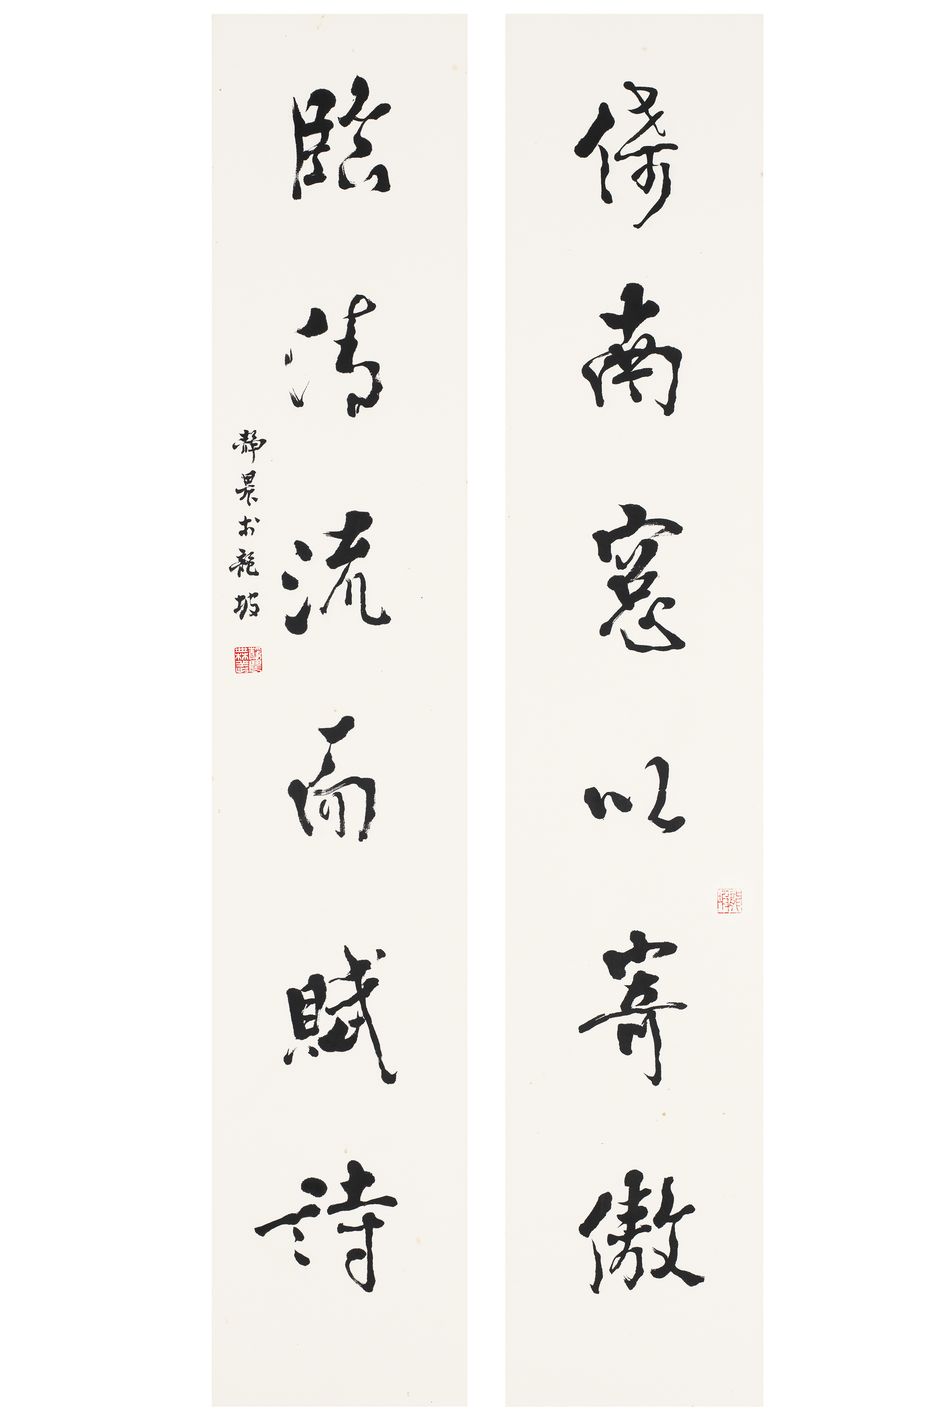 倚南窓以寄傲
臨清流而賦詩
靜農於龍坡